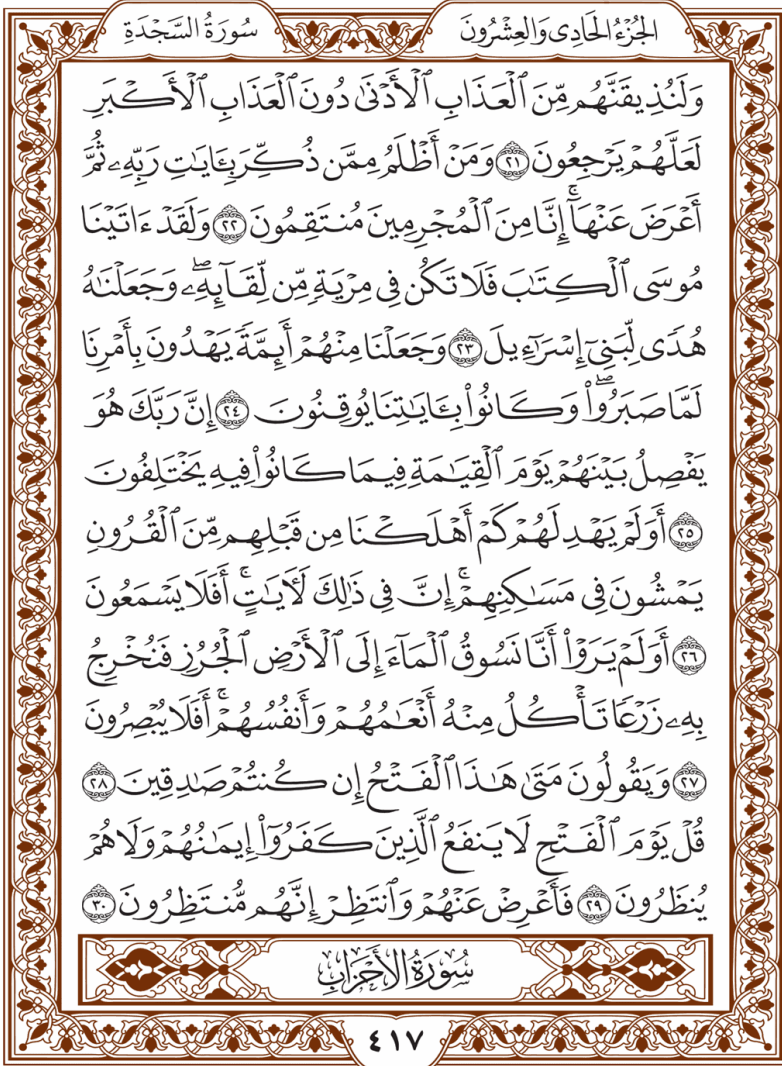 الجُزْءُ الحَادِى وَالعِشْرُونَ
سُورَةُ السَّجْدَةِ
وَلَنُذِيقَنَّهُم مِّنَ ٱلْعَذَابِ ٱلْأَدْنَىٰ دُونَ ٱلْعَذَابِ ٱلْأَكْبَرِ
لَعَلَّهُمْ يَرْجِعُونَ ٢١ وَمَنْ أَظْلَمُ مِمَّن ذُكِّرَ بِـَٔايَـٰتِ رَبِّهِۦ ثُمَّ
أَعْرَضَ عَنْهَآ ۚ إِنَّا مِنَ ٱلْمُجْرِمِينَ مُنتَقِمُونَ ٢٢ وَلَقَدْ ءَاتَيْنَا
مُوسَى ٱلْكِتَـٰبَ فَلَا تَكُن فِى مِرْيَةٍ مِّن لِّقَآئِهِۦ ۖ وَجَعَلْنَـٰهُ
هُدًى لِّبَنِىٓ إِسْرَٰٓءِيلَ ٢٣ وَجَعَلْنَا مِنْهُمْ أَئِمَّةً يَهْدُونَ بِأَمْرِنَا
لَمَّا صَبَرُوا۟ ۖ وَكَانُوا۟ بِـَٔايَـٰتِنَا يُوقِنُونَ ٢٤ إِنَّ رَبَّكَ هُوَ
يَفْصِلُ بَيْنَهُمْ يَوْمَ ٱلْقِيَـٰمَةِ فِيمَا كَانُوا۟ فِيهِ يَخْتَلِفُونَ
٢٥ أَوَلَمْ يَهْدِ لَهُمْ كَمْ أَهْلَكْنَا مِن قَبْلِهِم مِّنَ ٱلْقُرُونِ
يَمْشُونَ فِى مَسَـٰكِنِهِمْ ۚ إِنَّ فِى ذَٰلِكَ لَـَٔايَـٰتٍ ۖ أَفَلَا يَسْمَعُونَ
٢٦ أَوَلَمْ يَرَوْا۟ أَنَّا نَسُوقُ ٱلْمَآءَ إِلَى ٱلْأَرْضِ ٱلْجُرُزِ فَنُخْرِجُ
بِهِۦ زَرْعًا تَأْكُلُ مِنْهُ أَنْعَـٰمُهُمْ وَأَنفُسُهُمْ ۚ أَفَلَا يُبْصِرُونَ
٢٧ وَيَقُولُونَ مَتَىٰ هَـٰذَا ٱلْفَتْحُ إِن كُنتُمْ صَـٰدِقِينَ ٢٨
قُلْ يَوْمَ ٱلْفَتْحِ لَا يَنفَعُ ٱلَّذِينَ كَفَرُوٓا۟ إِيمَـٰنُهُمْ وَلَا هُمْ
يُنظَرُونَ ٢٩ فَأَعْرِضْ عَنْهُمْ وَٱنتَظِرْ إِنَّهُم مُّنتَظِرُونَ ٣٠
سُورَةُ الأَحْزَابِ
٤١٧